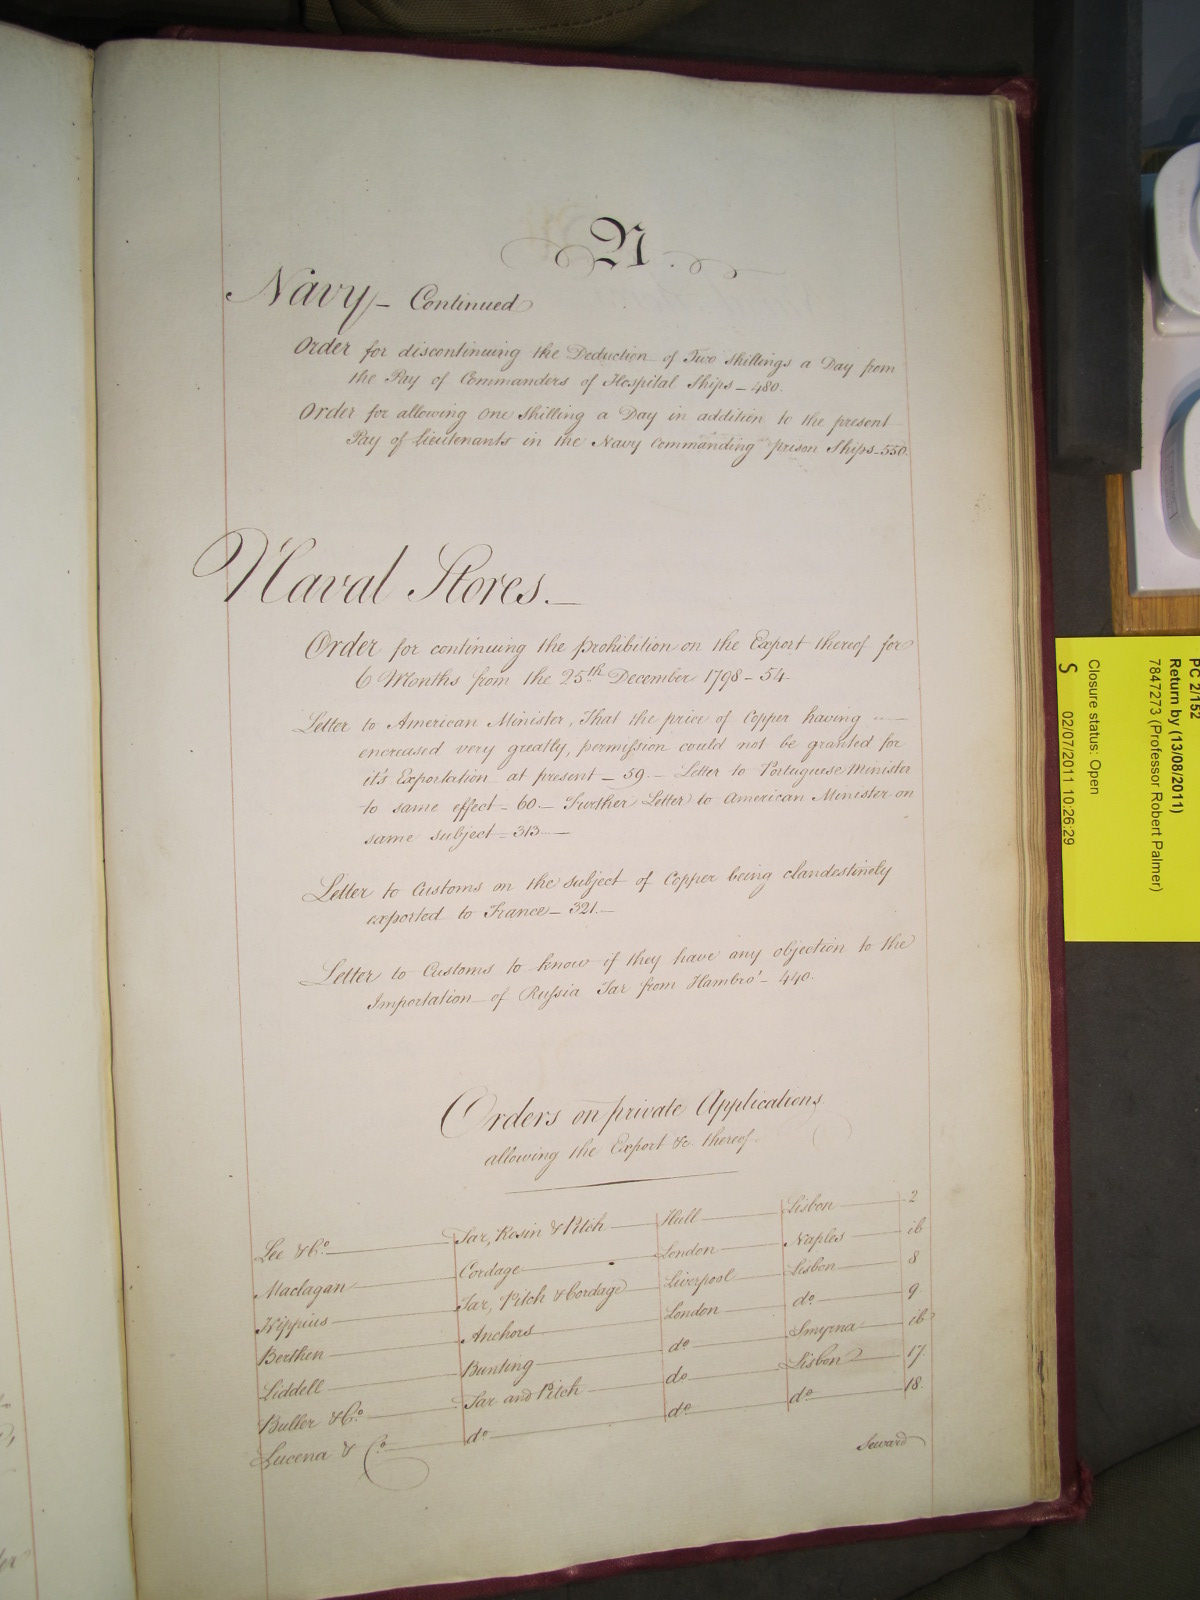 N
Navy — Continued
Order for discontinuing the Deduction of Two Shillings a Day from
the Pay of Commanders of Hospital Ships — 480.
Order for allowing One Shilling a Day in addition to the present
Pay of Lieutenants in the Navy Commanding prison Ships — 550.
Naval Stores. —
Order for continuing the prohibition on the Export thereof for
6 Months from the 25th December 1798 — 54
Letter to American Minister, That the price of Copper having
encreased very greatly, permission could not be granted for
it's Exportation at present — 59. — Letter to Portuguese Minister
to same effect — 60. — Further Letter to American Minister on
same subject — 313 —
Letter to Customs on the subject of Copper being clandestinely
exported to France — 321. —
Letter to Customs to know if they have any objection to the
Importation of Russia Tar from Hambro' — 440.
Orders on private Applications
allowing the Export &c. thereof.
Lee & Co. Tar, Rosin & Pitch Hull Lisbon 2
Maclagan Cordage London Naples ib
Hippius Tar, Pitch & Cordage Liverpool Lisbon 8
Berthen Anchors London do. 9
Liddell Bunting do Smyrna ib
Buller & Co. Tar and Pitch do Lisbon 17
Lucena & Co. do. do. do 18.
Seward
PC 2/152
Return by (13/08/2011)
7847273 (Professor Robert Palmer)
Closure status: Open
S 02/07/2011 10:26:29